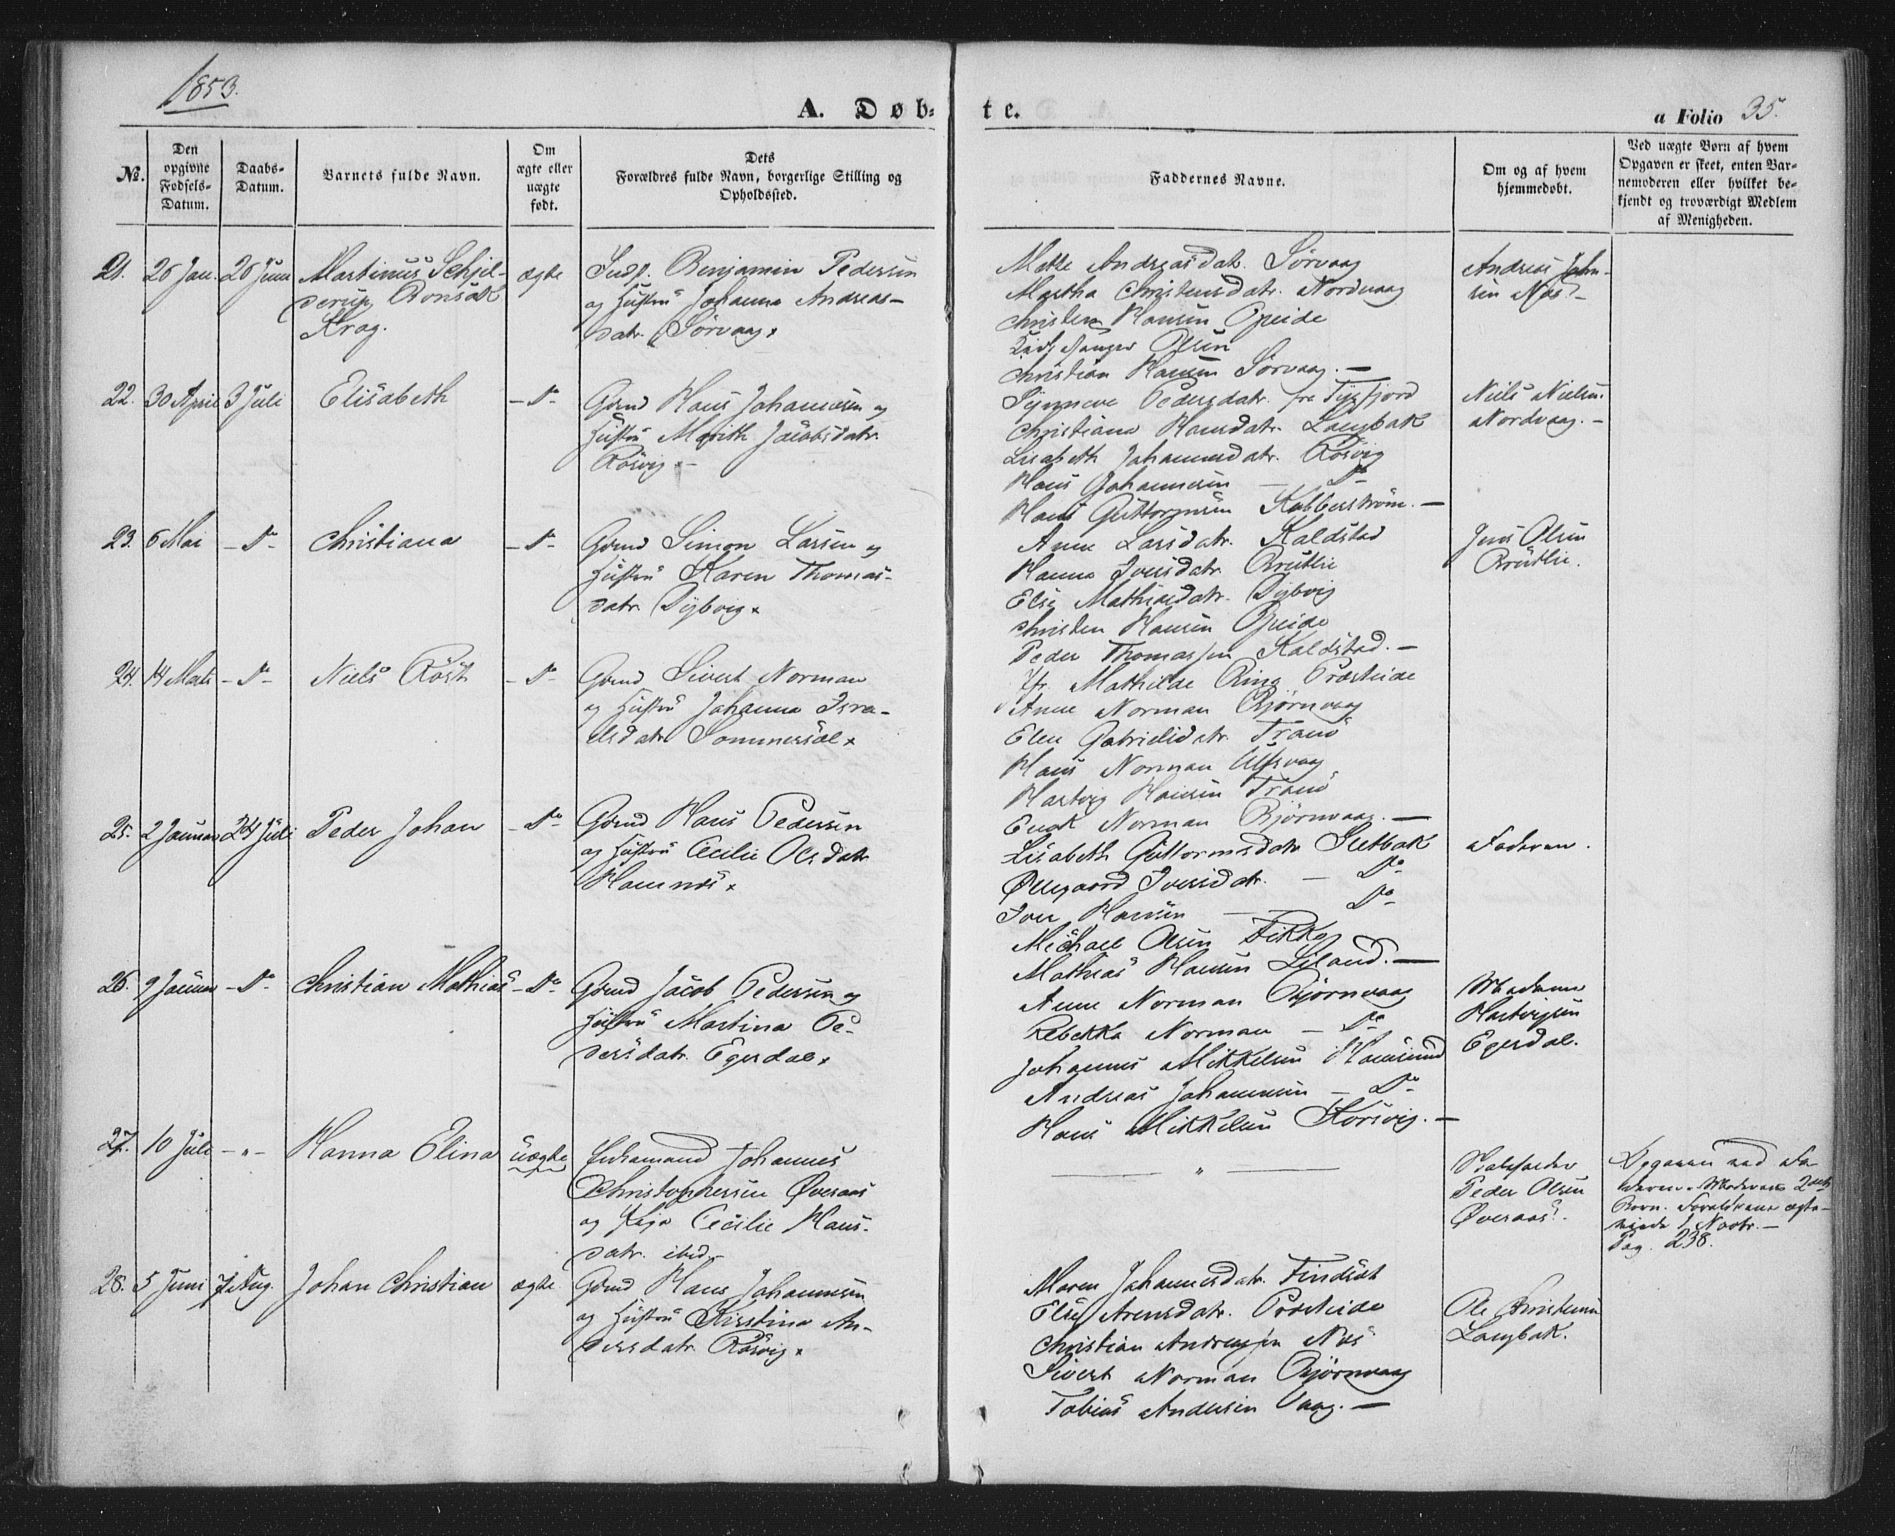 1853.
A. Døb-
te.
a Folio 35.
No.
Den opgivne Fødsels-Datum.
Daabs-Datum.
Barnets fulde Navn.
Om ægte eller uægte født.
Dets Forældres fulde Navn, borgerlige Stilling og Opholdssted.
Faddernes Navne.
Om og af hvem hjemmedøbt.
Ved uægte Børn af hvem Opgaven er skeet, enten Barnemoderen eller hvilket bekjendt og troværdigt Medlem af Menigheden.
21. 26 Jan. 26 Juni Martinus Schjel-
derup Rønsæk
Krag.
ægte
Indf. Benjamin Pedersen
og Hustru Johanna Andreas-
datr. Sørvaag.
Mette Andreasdatr. Sørvaag
Martha Christensdatr. Nordvaag
Christen Hansen Qveide
Olsen
Christian Hansen Sørvaag. —
Andreas Johan-
sen Næs. —
22. 30 April 3 Juli Elisabeth — Do —
Gbmd Hans Johannesen og
Hustru Marith Jacobsdatr.
Rørvig. —
Synneve Pedersdatr. fra Tysfjord
Christiana Hansdatr. Langbak
Lisabeth Johannesdatr. Rørvig
Hans Johannesen — Do
Hans Guttormsen Kobberström. —
Niels Nielsen
Nordvaag. —
23. 6 Mai — Do — Christiana — Do —
Gbmd Simon Larsen og
Hustru Karen Thomas-
datr. Dybvig.
Anne Larsdatr. Kaldstad
Hanna Iversdatr. Brutlie
Else Mathiasdatr. Dybvig
Christen Hansen Qveide
Peder Thomassen Kaldstad. —
Jens Olsen
Brutlie.
24. 14 Marts — Do — Niels Röst — Do —
Gbmd Sivert Norman
og Hustru Johanna Isra-
elsdatr. Sommersæl
Jfr. Mathilde Ring Præsteide
Anne Norman Bjørnvaag
Elen Gabrielsdatr. Tranö
Hans Norman Ulfsvaag
Hartvig Hansen Tranö
Enok Norman Bjørnvaag. —
25. 2 Januar 24 Juli Peder Johan — Do —
Gbmd Hans Pedersen
og Hustru Cecilie Olsdatr.
Hamnæs
Lisabeth Guttormsdatr. Sletbak
Øllegaard Iversdatr. — Do —
Iver Hansen — Do —
Michael Olsen Fikke
Mathias Hansen Leland. —
Faderen.
26. 9 Januar — Do — Christian Mathias — Do —
Gbmd Jacob Pedersen og
Hustru Martina Pe-
dersdatr. Egerdal
Anne Norman Bjørnvaag
Rebekka Norman — Do
Johannes Mikkelsen Hamsund
Andreas Johannesen — Do —
Hans Mikkelsen Korsvig. —
Madame
Hartvigsen
Egerdal.
27. 10 Juli — „ — Hanna Elina uægte
Enkemand Johannes
Christophersen Øveraas
og Pige Cecilie Hans-
datr. ibid. —
— „ —
Peder Olsen
Øveraas.
Opgaven ved Fa-
deren. Moderens 2det
Barn. Forældrene ægte-
viede 1 Novbr. —
Pag. 238.
28. 5 Juni 7 Aug. Johan Christian ægte
Gbmd Hans Johannesen
og Hustru Kirstina An-
dersdatr. Rørvig.
Maren Johannesdatr. Finds
Else Arensdatr. Præsteide
Christian Andreassen Næs
Sivert Norman Bjørnvaag
Tobias Andersen Vaag. —
Ole Christensen
Langbak.